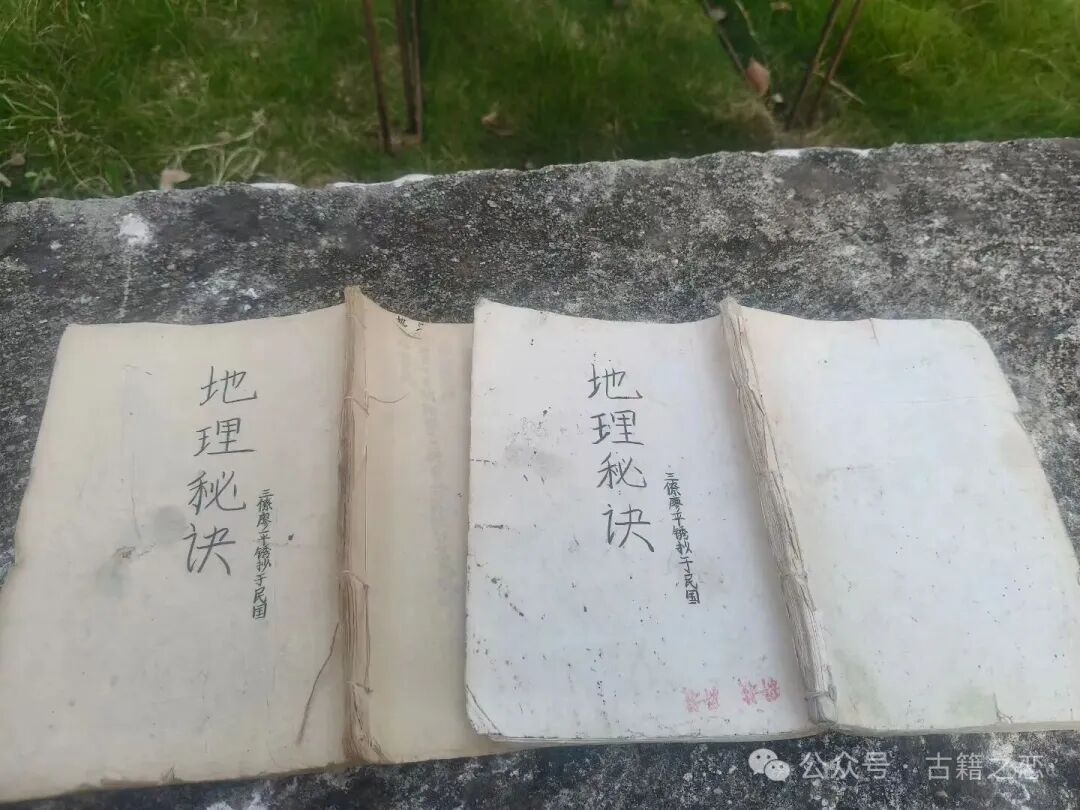 地理秘诀
三僚廖平锈抄于民国
地理秘诀
三僚廖平锈抄于民国
公众号·古籍之恋